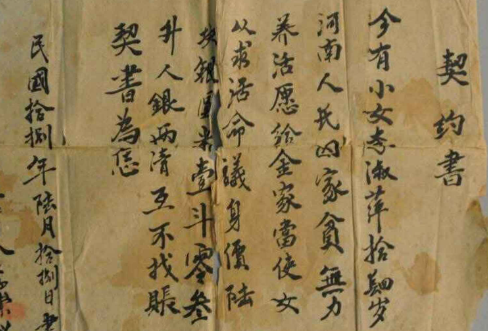 契约書
今有小女李淑萍拾捌岁
河南人氏因家貧無力
养活愿给金家當使女
从求活命議身價陆
塊銀圓米壹斗零叁
升人銀两清互不找賬
契書為慿
民國拾捌年陆月拾捌日書